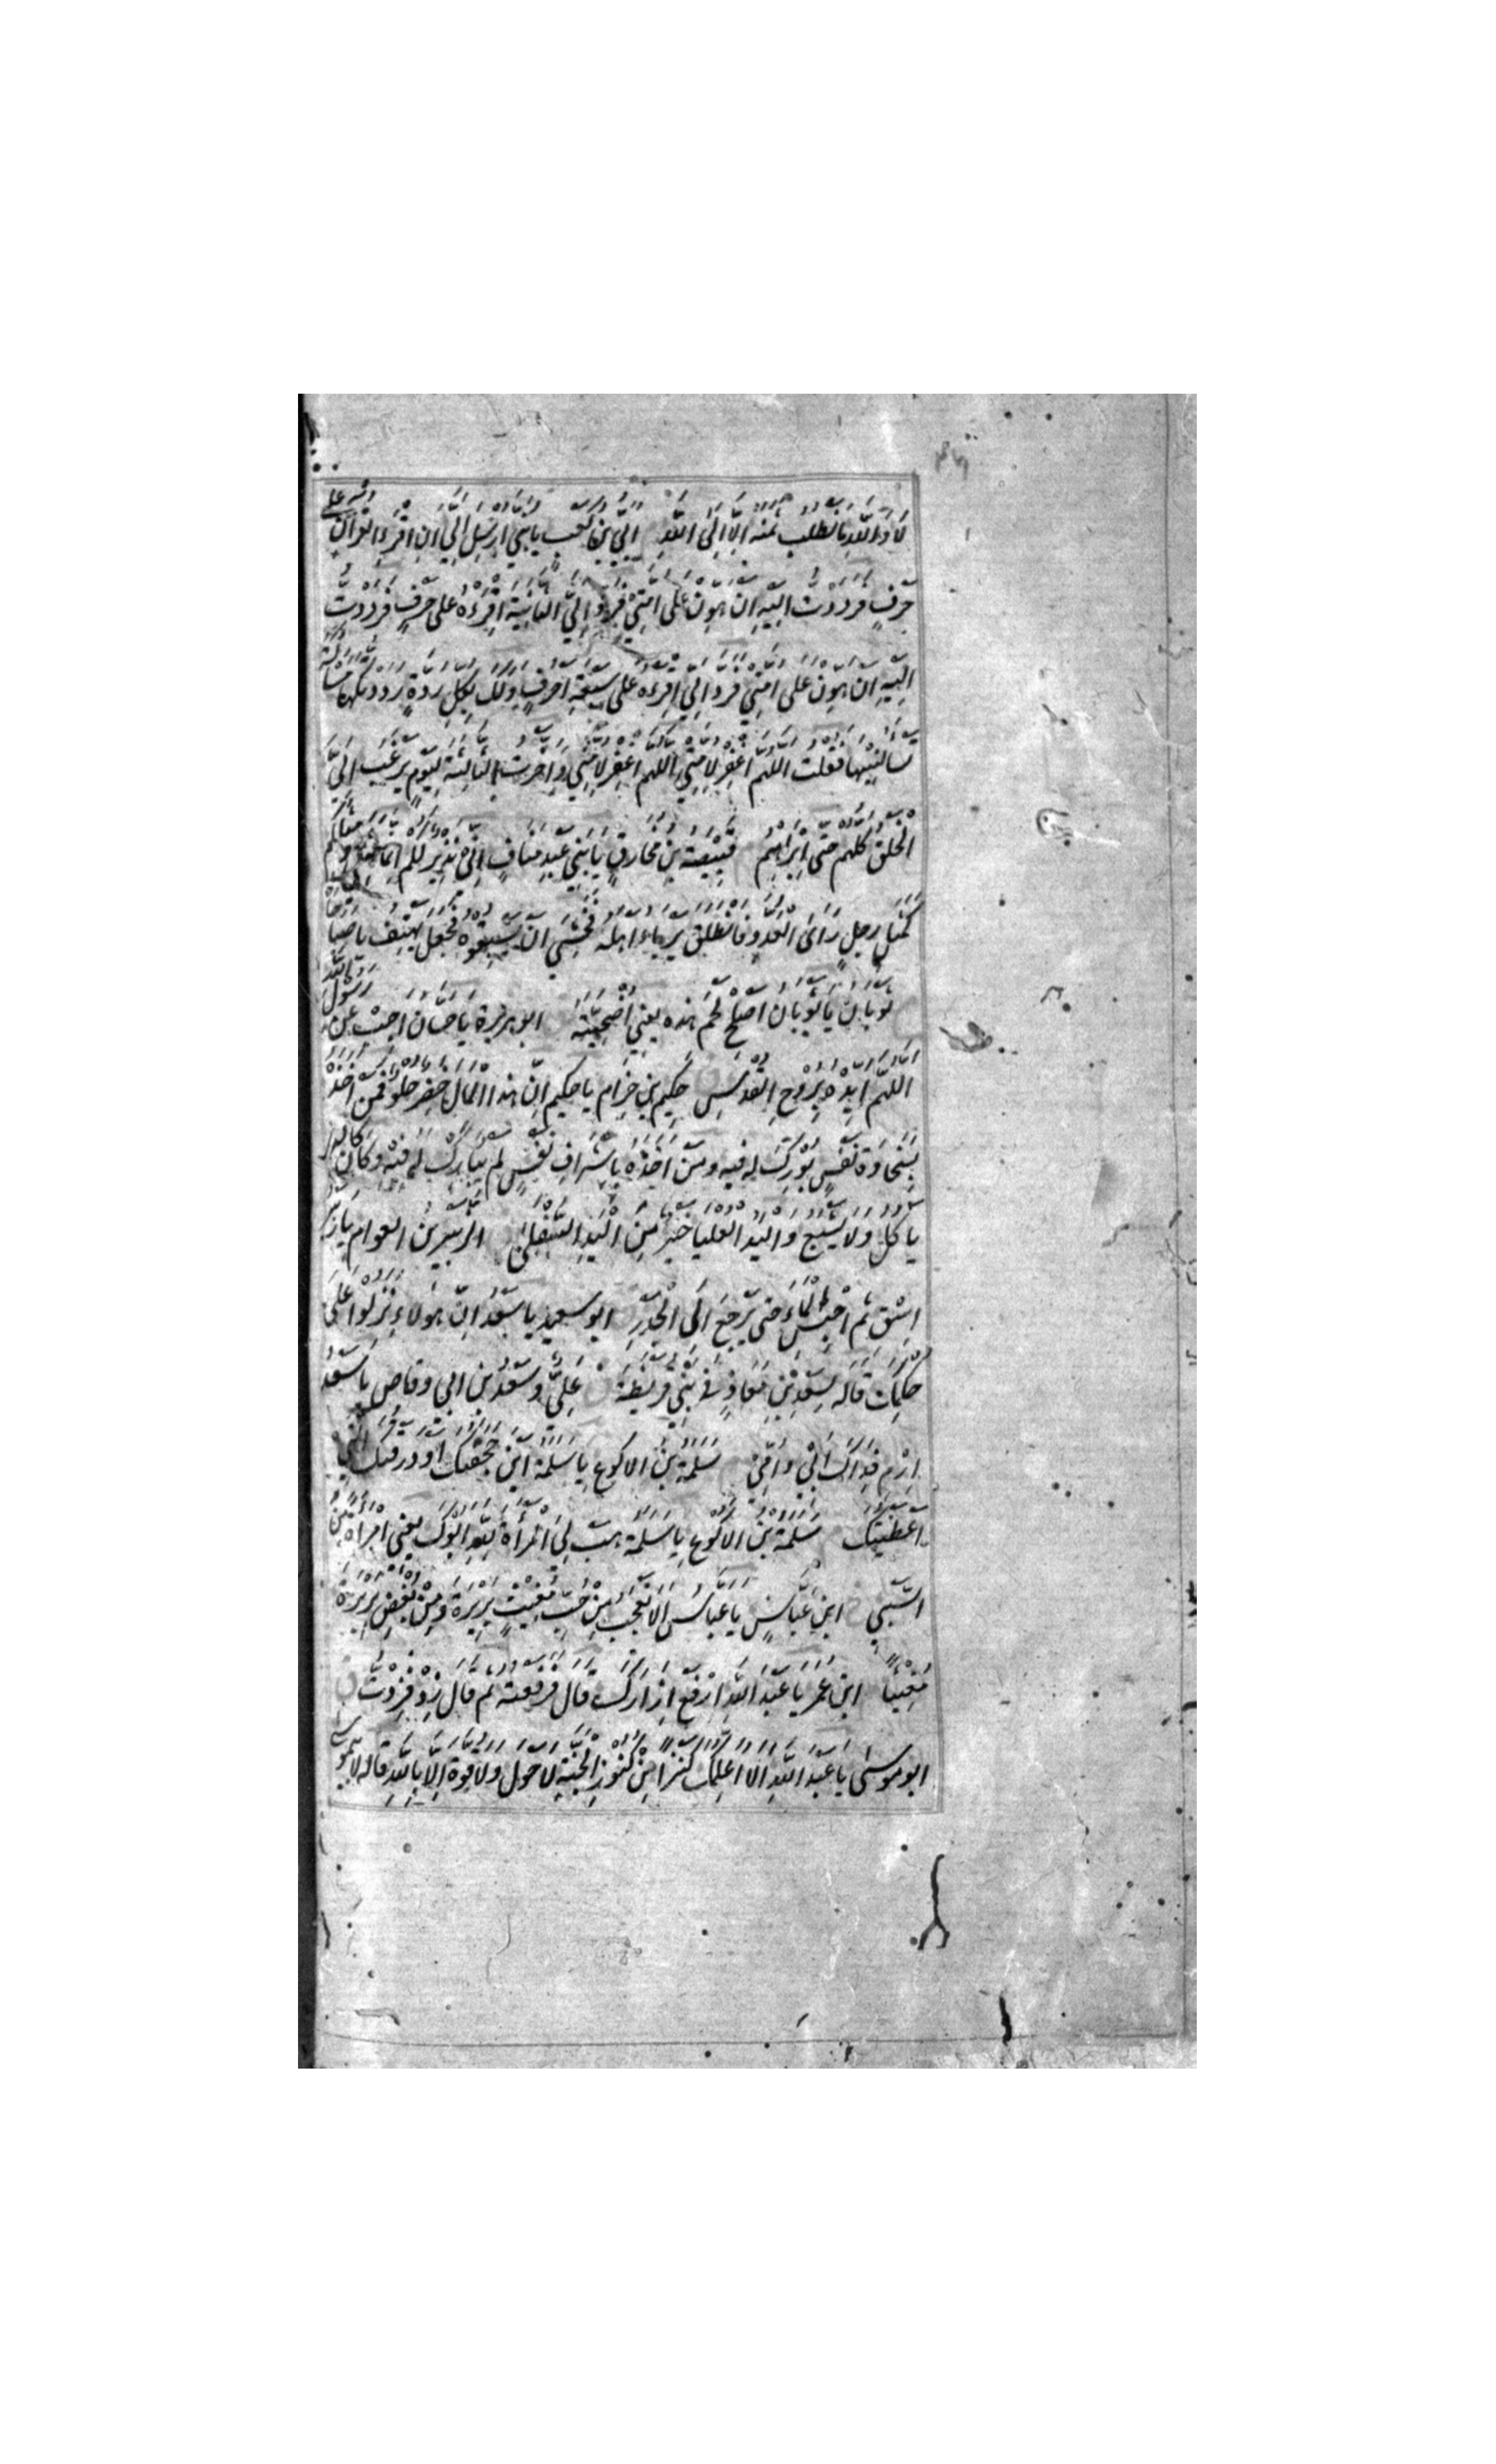 لا والله ما نطلب ثمنه الا الى الله ابي بن كعب يا ابي ارسل الي ان اقرء القرآن على
حرف فرددت اليه ان هون على امتي فرد الي الثانية اقرءه على حرف فرددت
اليه ان هون على امتي فرد الي اقرءه على سبعة احرف ولك بكل ردة رددتكها مسالة
تسالنيها فقلت اللهم اغفر لامتي اللهم اغفر لامتي واخرت الثالثة ليوم يرغب الي
الخلق كلهم حتى ابراهيم قبيصة بن مخارق يا بني عبد مناف اني نذير لكم انما مثلي ومثلكم
كمثل رجل راى العدو فانطلق يرباء اهله فخشي ان يسبقوه فجعل يهتف يا صباحاه
ثوبان يا ثوبان اصلح لحم هذه يعني اضحيته ابو هريرة يا حسان اجب عن رسول الله
اللهم ايده بروح القدس حكيم بن حزام يا حكيم ان هذا المال خضر حلو فمن اخذه
بسخاوة نفس بورك له فيه ومن اخذه باشراف نفس لم يبارك له فيه وكان كالذي
ياكل ولا يشبع واليد العليا خير من اليد السفلى الزبير بن العوام يا زبير
اسق ثم احبس الماء حتى يرجع الى الجدر ابو سعيد يا سعد ان هولاء نزلوا على
حكمك قاله لسعد بن معاذ في بني قريظة علي وسعد بن ابي وقاص يا سعد
ارم فداك ابي وامي سلمة بن الاكوع يا سلمة اين حجفتك او درقتك التي
اعطيتك سلمة بن الاكوع يا سلمة هب لي المرأة لله ابوك يعني امراة من
السبي ابن عباس يا عباس الا تعجب من حب مغيث بريرة ومن بغض بريرة
مغيثا ابن عمر يا عبد الله ارفع ازارك قال فرفعته ثم قال زد فزدت
ابو موسى يا عبد الله الا اعلمك كنزا من كنوز الجنة لا حول ولا قوة الا بالله قاله لابي موسى